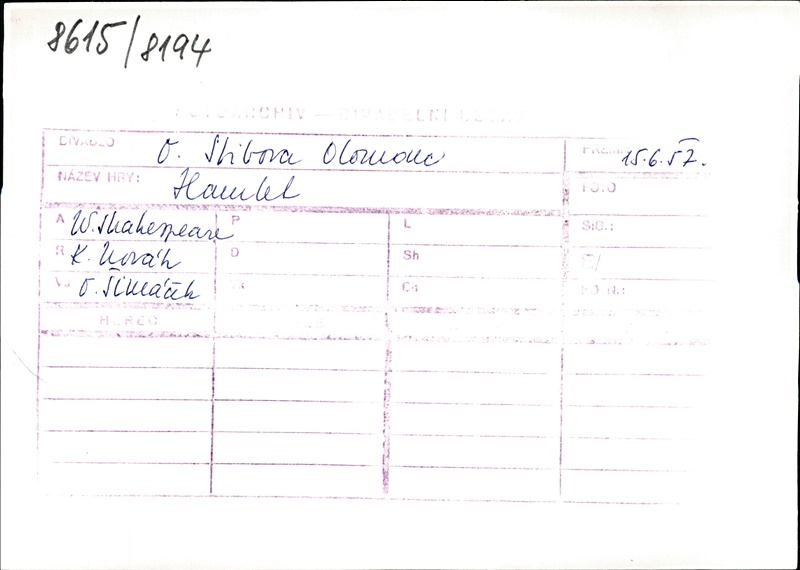 8615/8194
FOTOARCHIV — DIVADELNÍ
DIVADLO O. Stibora Olomouc PREMI 15.6.57.
NÁZEV HRY: Hamlet FOTO
A W. Shakespeare P L SIG.:
R K. Novák D Sh
V O. Šimáček
HEREC